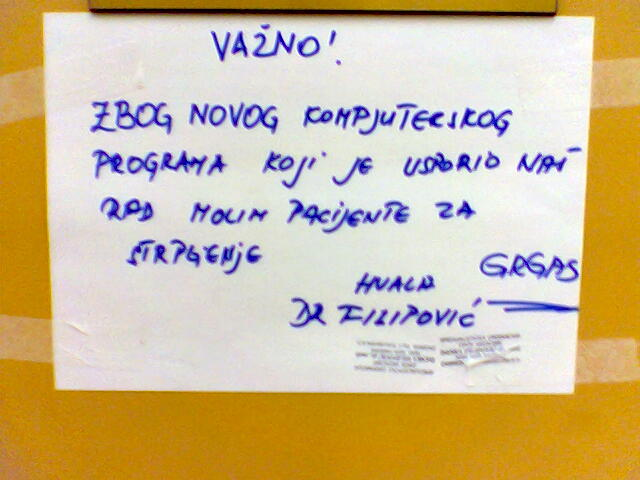 VAŽNO!
ZBOG NOVOG KOMPJUTERSKOG
PROGRAMA KOJI JE USPORIO NAŠ
RAD MOLIM PACIJENTE ZA
STRPLJENJE
GRGAS
HVALA
DR FILIPOVIĆ